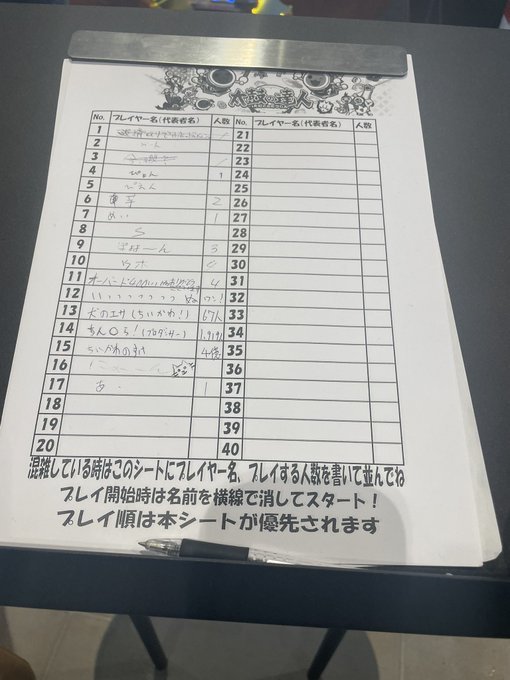 太鼓の達人
No. プレイヤー名(代表者名) 人数
1
2
3
4 ぴょん 1
5 ぴえん
6 2
7 めい 1
8 S
9 ぱぱーん 3
10 ウホ
11 オーバード 4
12 いいつつつつつつ
13 犬のエサ(ちいかわ!) 67人
14 ちん〇ち!(プロデューサー)
15 ちいかわの 4億
16 にゃーーん
17 あ 1
18
19
20
No. プレイヤー名(代表者名) 人数
21
22
23
24
25
26
27
28
29
30
31
32
33
34
35
36
37
38
39
40
混雑している時はこのシートにプレイヤー名、プレイする人数を書いて並んでね
プレイ開始時は名前を横線で消してスタート!
プレイ順は本シートが優先されます